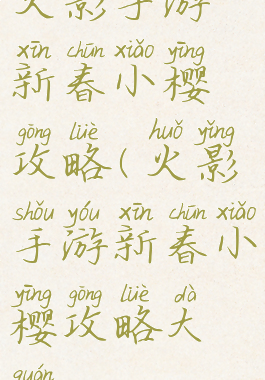 火影手游
xīn chūn xiǎo yīng
新春小樱
gōng lüè huǒ yǐng
攻略(火影
shǒu yóu xīn chūn xiǎo
手游新春小
yīng gōng lüè dà
樱攻略大
quán